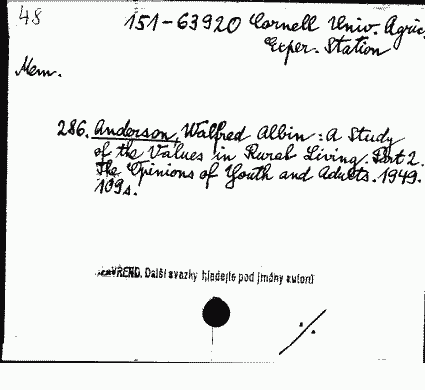 48
151-63920 Cornell Univ. Agric.
Exper. Station
Mem.
286. Anderson, Walfred Albin: A Study
of the Values in Rural Living. Part 2.
The Opinions of Youth and Adults. 1949.
109s.
UZAVŘENO. Další svazky hledejte pod jmény autorů